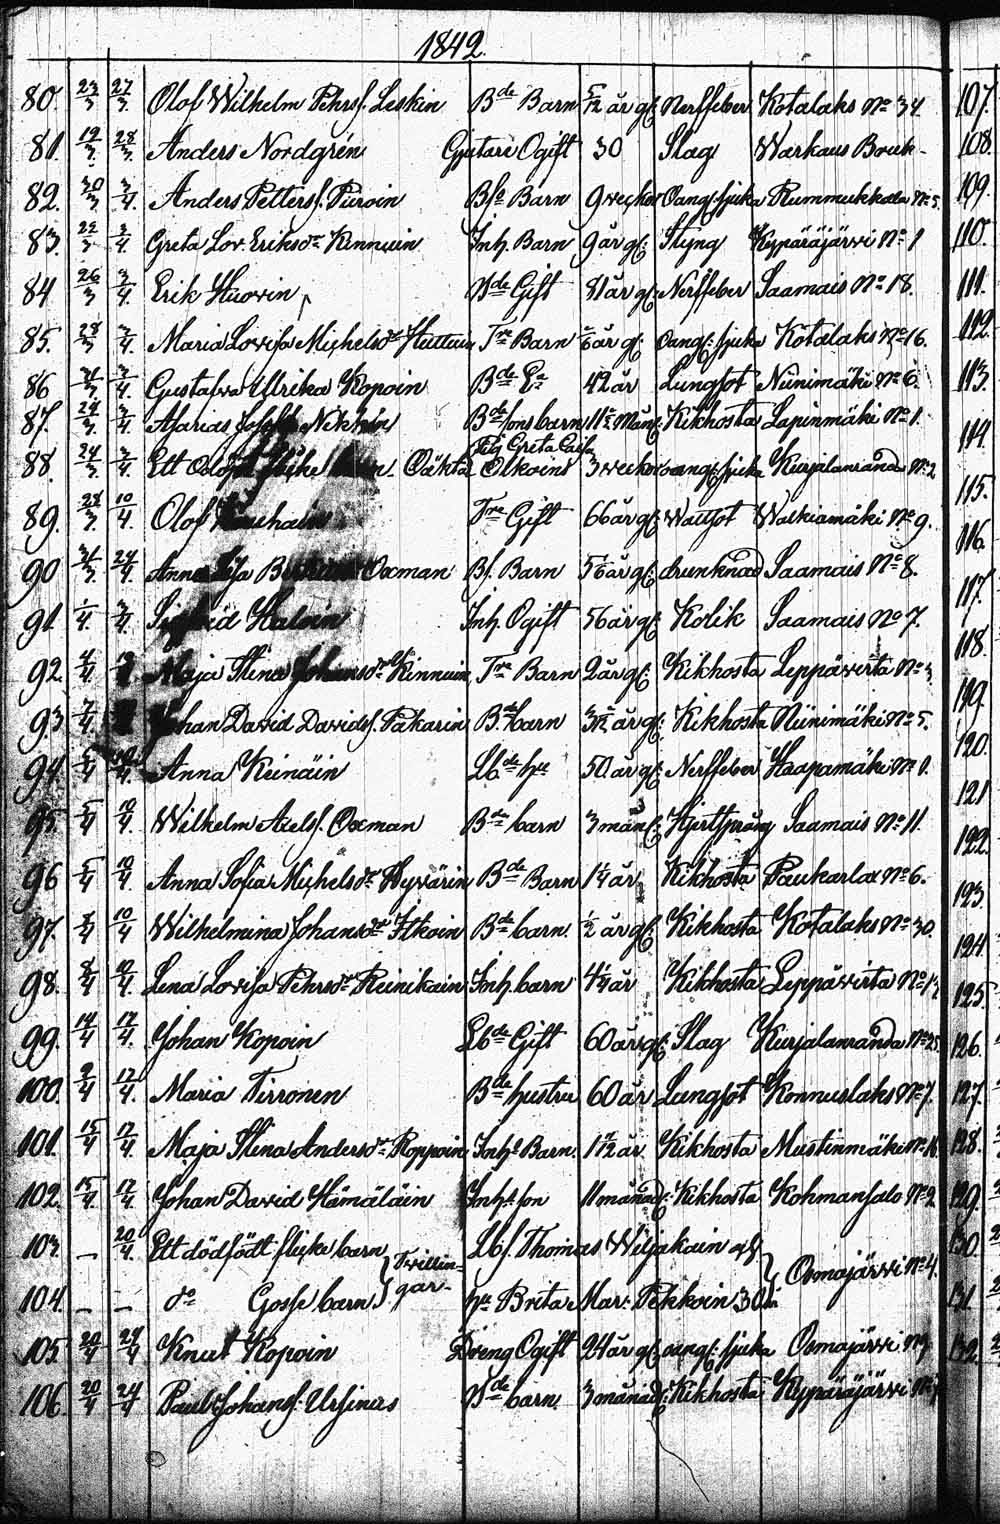 1842.
80. 23/3 27/3. Olof Wilhelm Pehrsf. Leskin Bde Barn 5/12 år gl: Nerffeber Kotalaks No 34
81. 19/3 28/3. Anders Nordgrén Gjutare Ogift 30 Slag Warkaus Bruk
82. 30/3 3/4. Anders Pettersf. Puroin Bf. Barn 9 veckor Oang. sjuka Rummukkala No 5.
83. 22/3 3/4. Greta Lov. Eriksdr Kinnuin Inh. Barn 9 år gl: Styng Kypäräjärvi No 1
84 26/3 3/4. Erik Huovin Bde Gift 81 år gl: Nerffeber Saamais No 18.
85. 28/3 3/4. Maria Lovisa Michelsdr Huttuin Trs Barn år gl: oang: sjuka Kotalaks No 16.
86 31/3 3/4. Gustafva Ulrika Kopoin Bde Ea 42 år Lungsot Niinimäki No 6.
87. 29/3 3/4. Asarias Nikkin Bde sons barn 11 Mån: Kikhosta Lapinmäki No 1.
88 24/3 3/4. Ett Odöpt flicke barn. Oäkta Pig. Greta Caisa Olkoins 3 veckor oang: sjuka Kurjalanranda No 2
89. 28/3 10/4. Olof Trs Gift 66 år gl: Wattsot Watkiamäki No 9.
90 31/3 24/4. Anna Lisa Oxman Bf. Barn 5 år gl: drunknad Saamais No 8.
91. 1/4. 3/4. Sigfrid Haloin Inh. Ogift 56 år gl: Kolik Saamais No 7.
92. 4/4 10/4. Maja Stina Johansdr Kinnuin, Trs Barn 2 år gl: Kikhosta Leppävirta No 3
93. 7/4. Johan David Davidsf. Pakarin Bde barn år gl: Kikhosta Niinimäki No 5.
94. 5/4 10/4. Anna Keinäin Lbde hu 50 år gl: Nerffeber Haapamäki No 1.
95. 5/4 10/4. Wilhelm Axelsf. Oxman Bde barn 3 mån: Hjertsprång Saamais No 11.
96 5/4 10/4. Anna Sofia Michelsdr Hyvärin Bde Barn 1 1/4 år Kikhosta Paukarlax No 6.
97. 10/4 Wilhelmina Johansdr Itkoin Bde barn. 1/2 år gl: Kikhosta Kotalaks No 30.
98. 8/4 10/4. Lena Lovisa Pehrsdr Reinikain Inh. barn 4 1/4 år Kikhosta Leppävirta No
99. 14/4 17/4. Johan Kopoin Lbde Gift 60 år gl: Slag Kurjalanranda No 25.
100. 9/4 17/4. Maria Tirronen Bde hustru 60 år Lungsot Konnuslaks No 7.
101. 15/4 17/4. Maja Stina Andersdr Roppoin Inhs Barn. 1 1/2 år Kikhosta Mustinmäki No 16
102. 15/4. 17/4. Johan David Hämäläin Inhs son 11 månad: Kikhosta Kohmansalo No 2
103. – 20/4. Ett dödfödt flicke barn } Twillin- Lbf. Thomas Wiljakain } Osmajärvi No 4.
104. – – do Gosse barn } gar- hu Brita Mar: Pekkoin 30
105. 20/4 24/4 Knut Kopoin Dreng Ogift 24 år gl: oang: sjuka Osmajärvi
106. 20/4 24/4 Paul Johansf. Ursinus Bde barn 3 månad: Kikhosta Kypäräjärvi
107.
108.
109.
110.
111.
112.
113.
114
115.
116.
117.
118.
119.
120.
121
122.
123.
124.
125.
126.
127.
128.
129.
130.
131.
132.